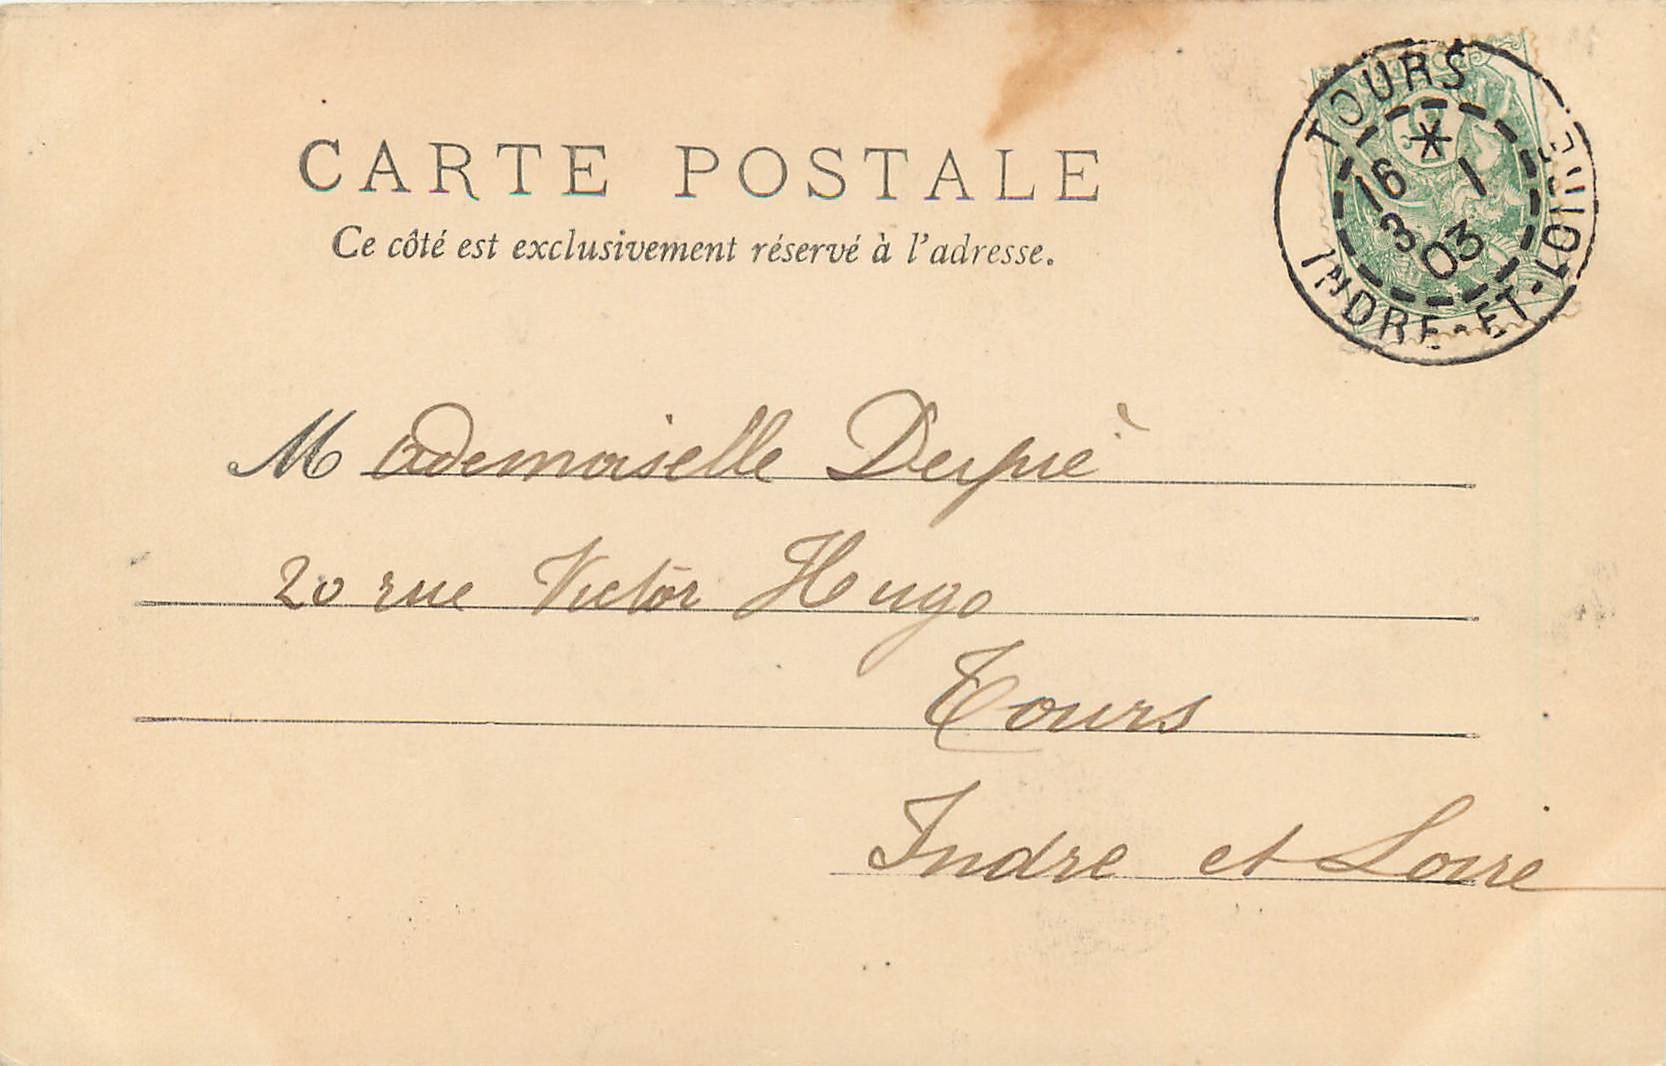 CARTE POSTALE
Ce côté est exclusivement réservé à l'adresse.
TOURS
16 1
3 03
INDRE-ET-LOIRE
Mademoiselle
20 rue Victor Hugo
Tours
Indre et Loire